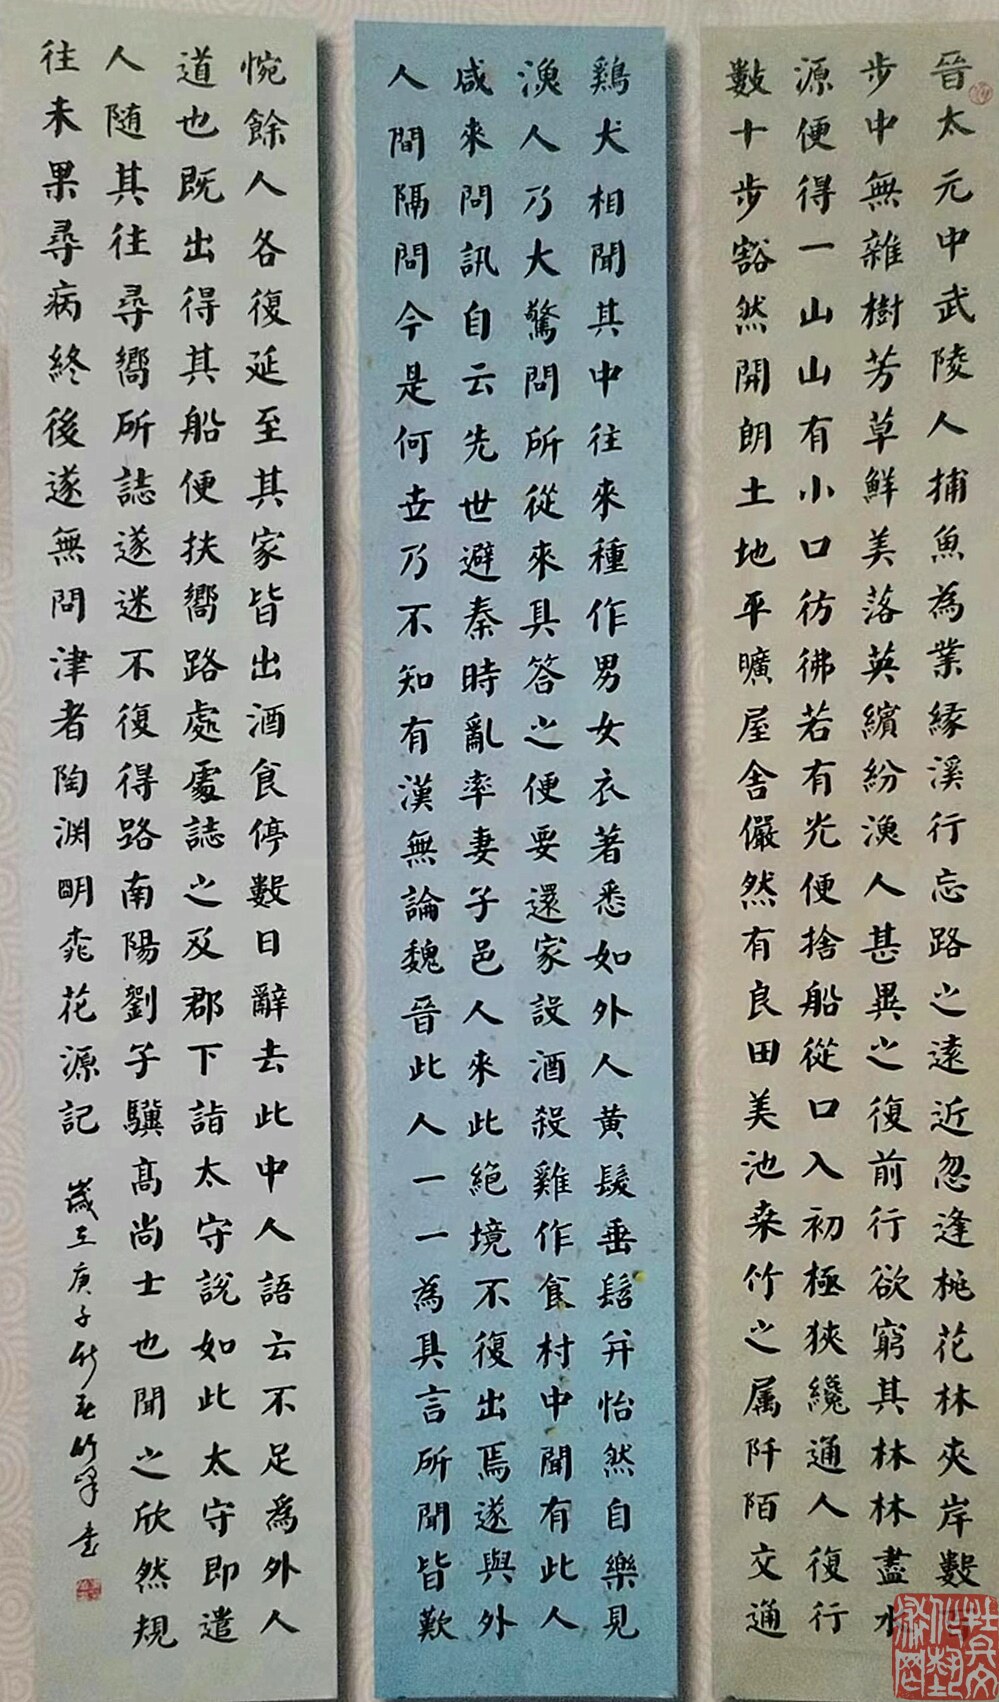 晉太元中武陵人捕魚為業緣溪行忘路之遠近忽逢桃花林夾岸數
步中無雜樹芳草鮮美落英繽紛漁人甚異之復前行欲窮其林林盡水
源便得一山山有小口彷彿若有光便捨船從口入初極狹纔通人復行
數十步豁然開朗土地平曠屋舍儼然有良田美池桒竹之属阡陌交通
鷄犬相聞其中往來種作男女衣著悉如外人黄髮垂髫并怡然自樂見
漁人乃大驚問所從來具答之便要還家設酒殺雞作食村中聞有此人
咸來問訊自云先世避秦時亂率妻子邑人來此絕境不復出焉遂與外
人間隔問今是何世乃不知有漢無論魏晉此人一一為具言所聞皆歎
惋餘人各復延至其家皆出酒食停數日辭去此中人語云不足為外人
道也既出得其船便扶嚮路處處誌之及郡下詣太守說如此太守即遣
人随其往尋嚮所誌遂迷不復得路南陽劉子驥高尚士也聞之欣然規
往未果尋病終後遂無問津者陶渊明桃花源記 歲在庚子新春竹峰書